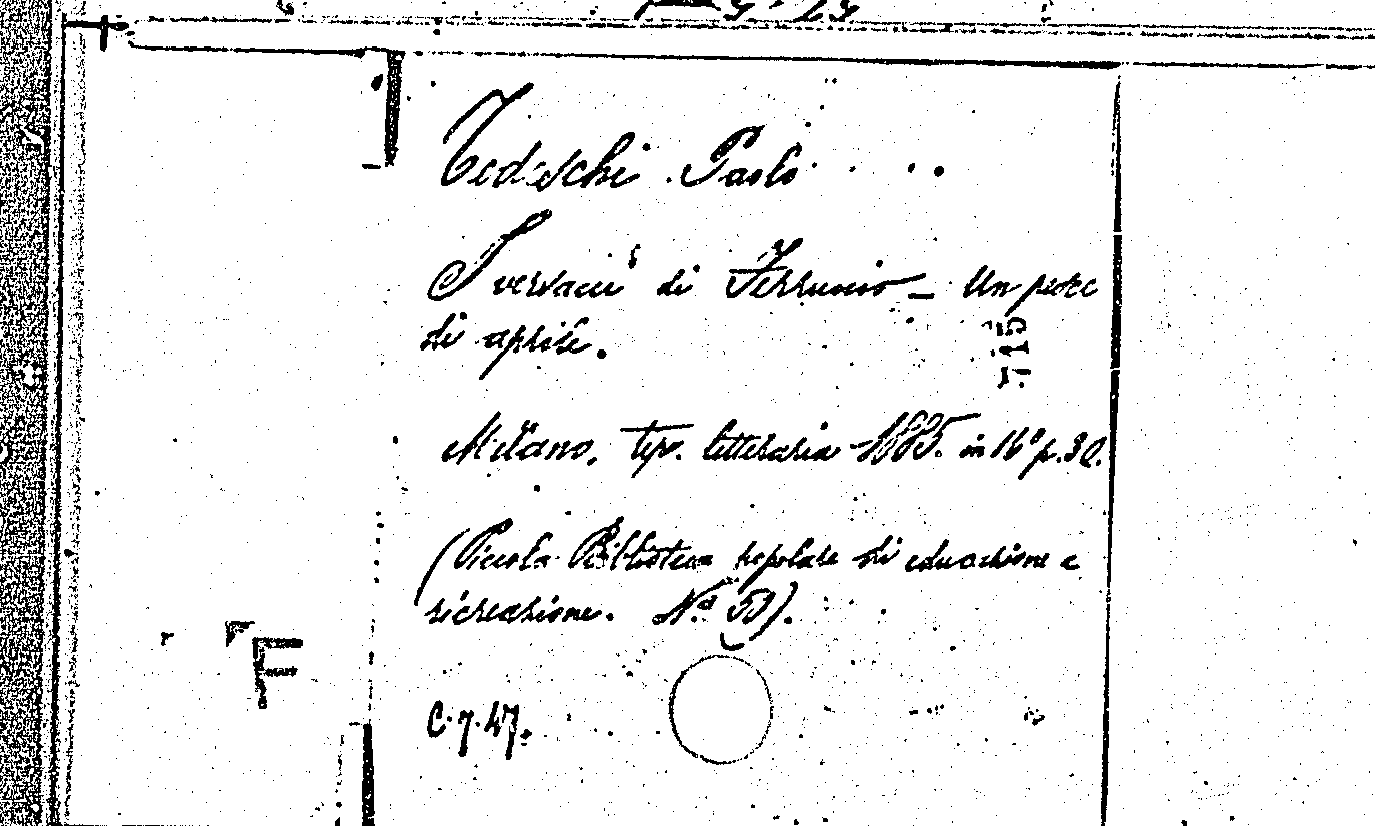 Tedeschi Paolo
I versacci di Ferruccio – Un pesce
di aprile.
715
Milano, tip. letteraria 1885. in 16° p. 30.
(Piccola Biblioteca popolare di educazione e
ricreazione. N.°
F
C.7.47.